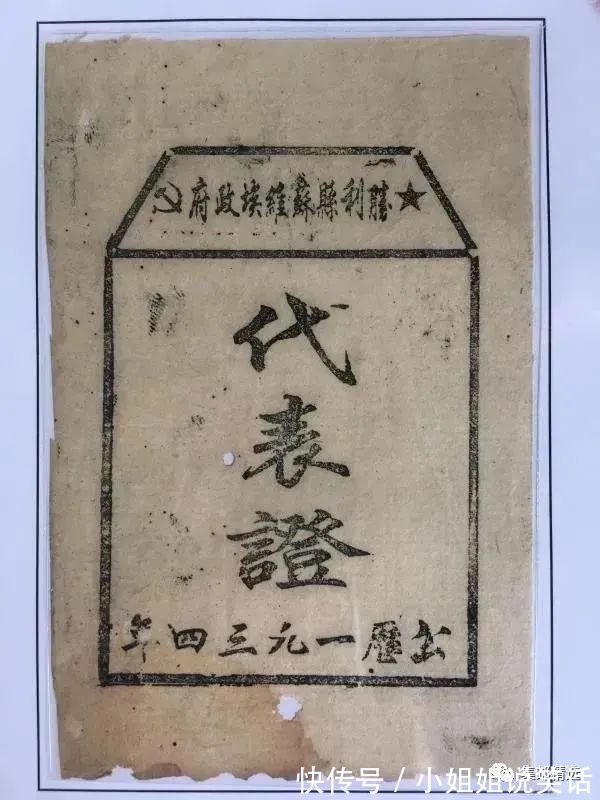 勝利縣蘇維埃政府
代表證
公歷一九三四年
快传号 / 小姐姐说笑话